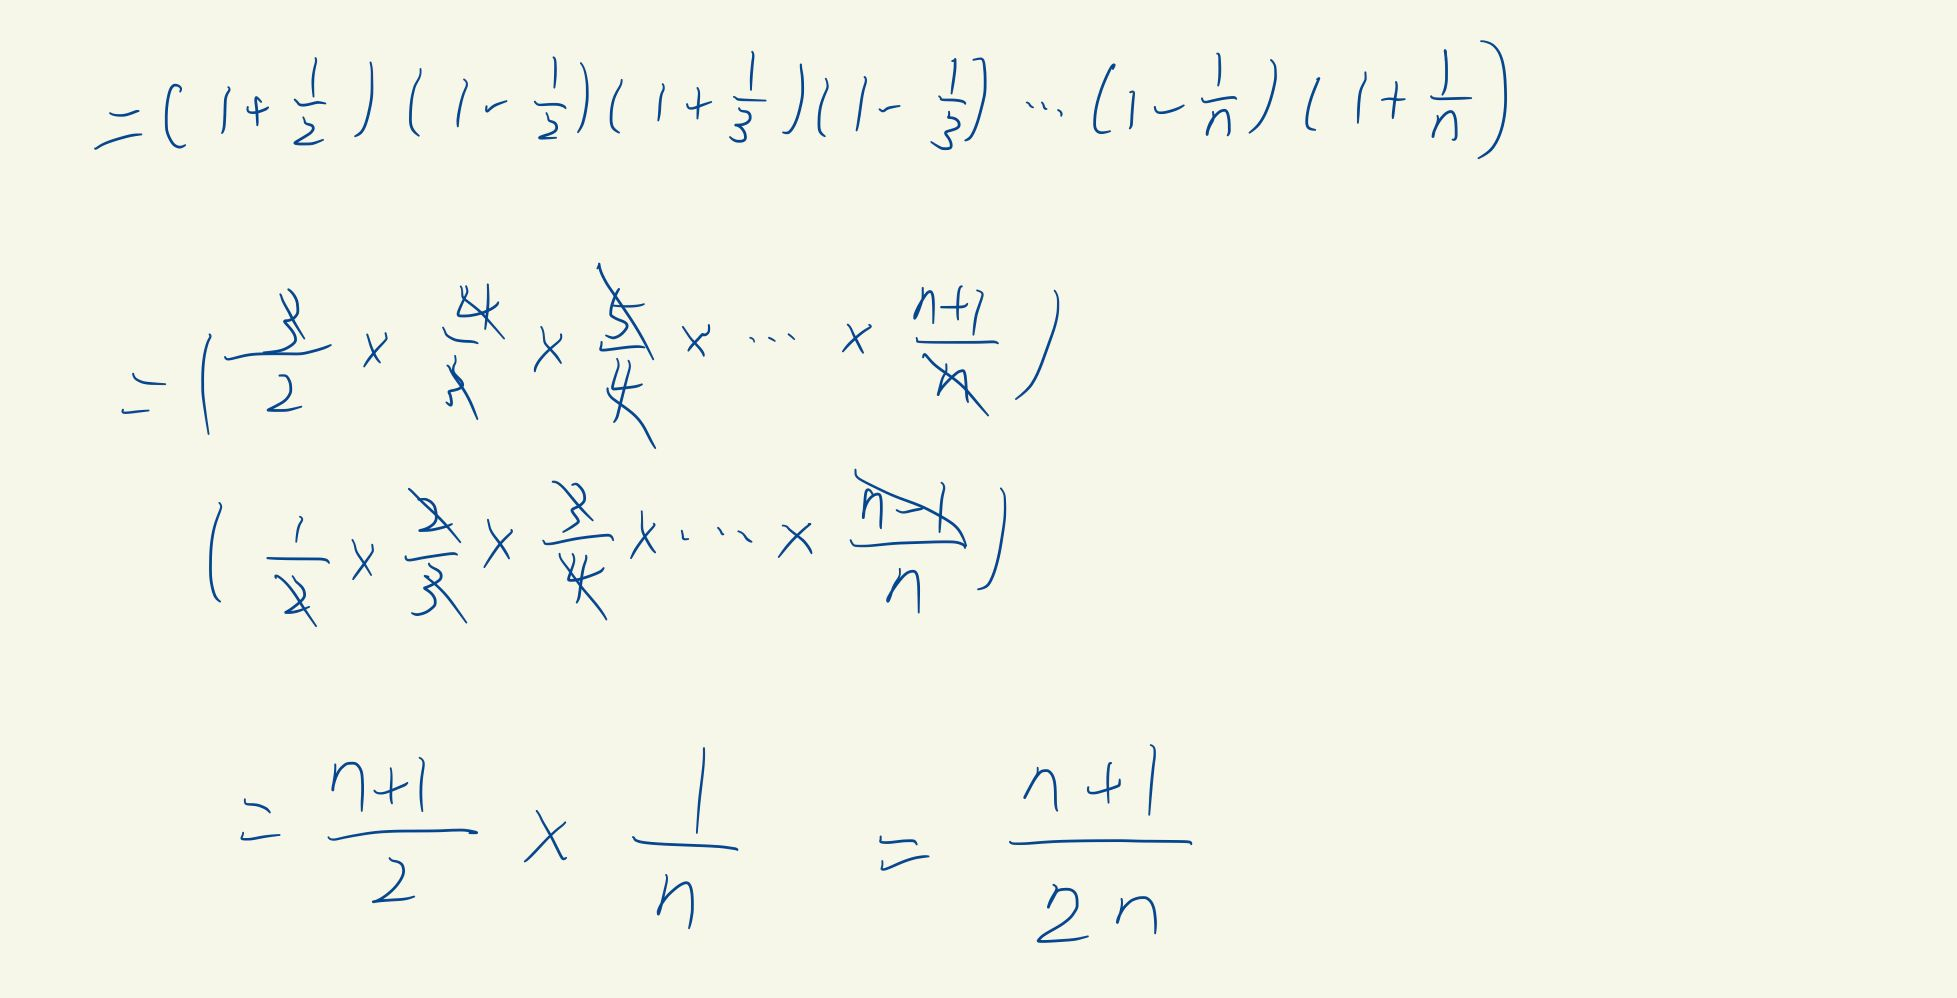 = (1 + 1/2)(1 - 1/2)(1 + 1/3)(1 - 1/3) ... (1 - 1/n)(1 + 1/n)
= (3/2 × 4/3 × 5/4 × ... × (n+1)/n)
(1/2 × 2/3 × 3/4 × ... × (n-1)/n)
= (n+1)/2 × 1/n = (n+1)/(2n)